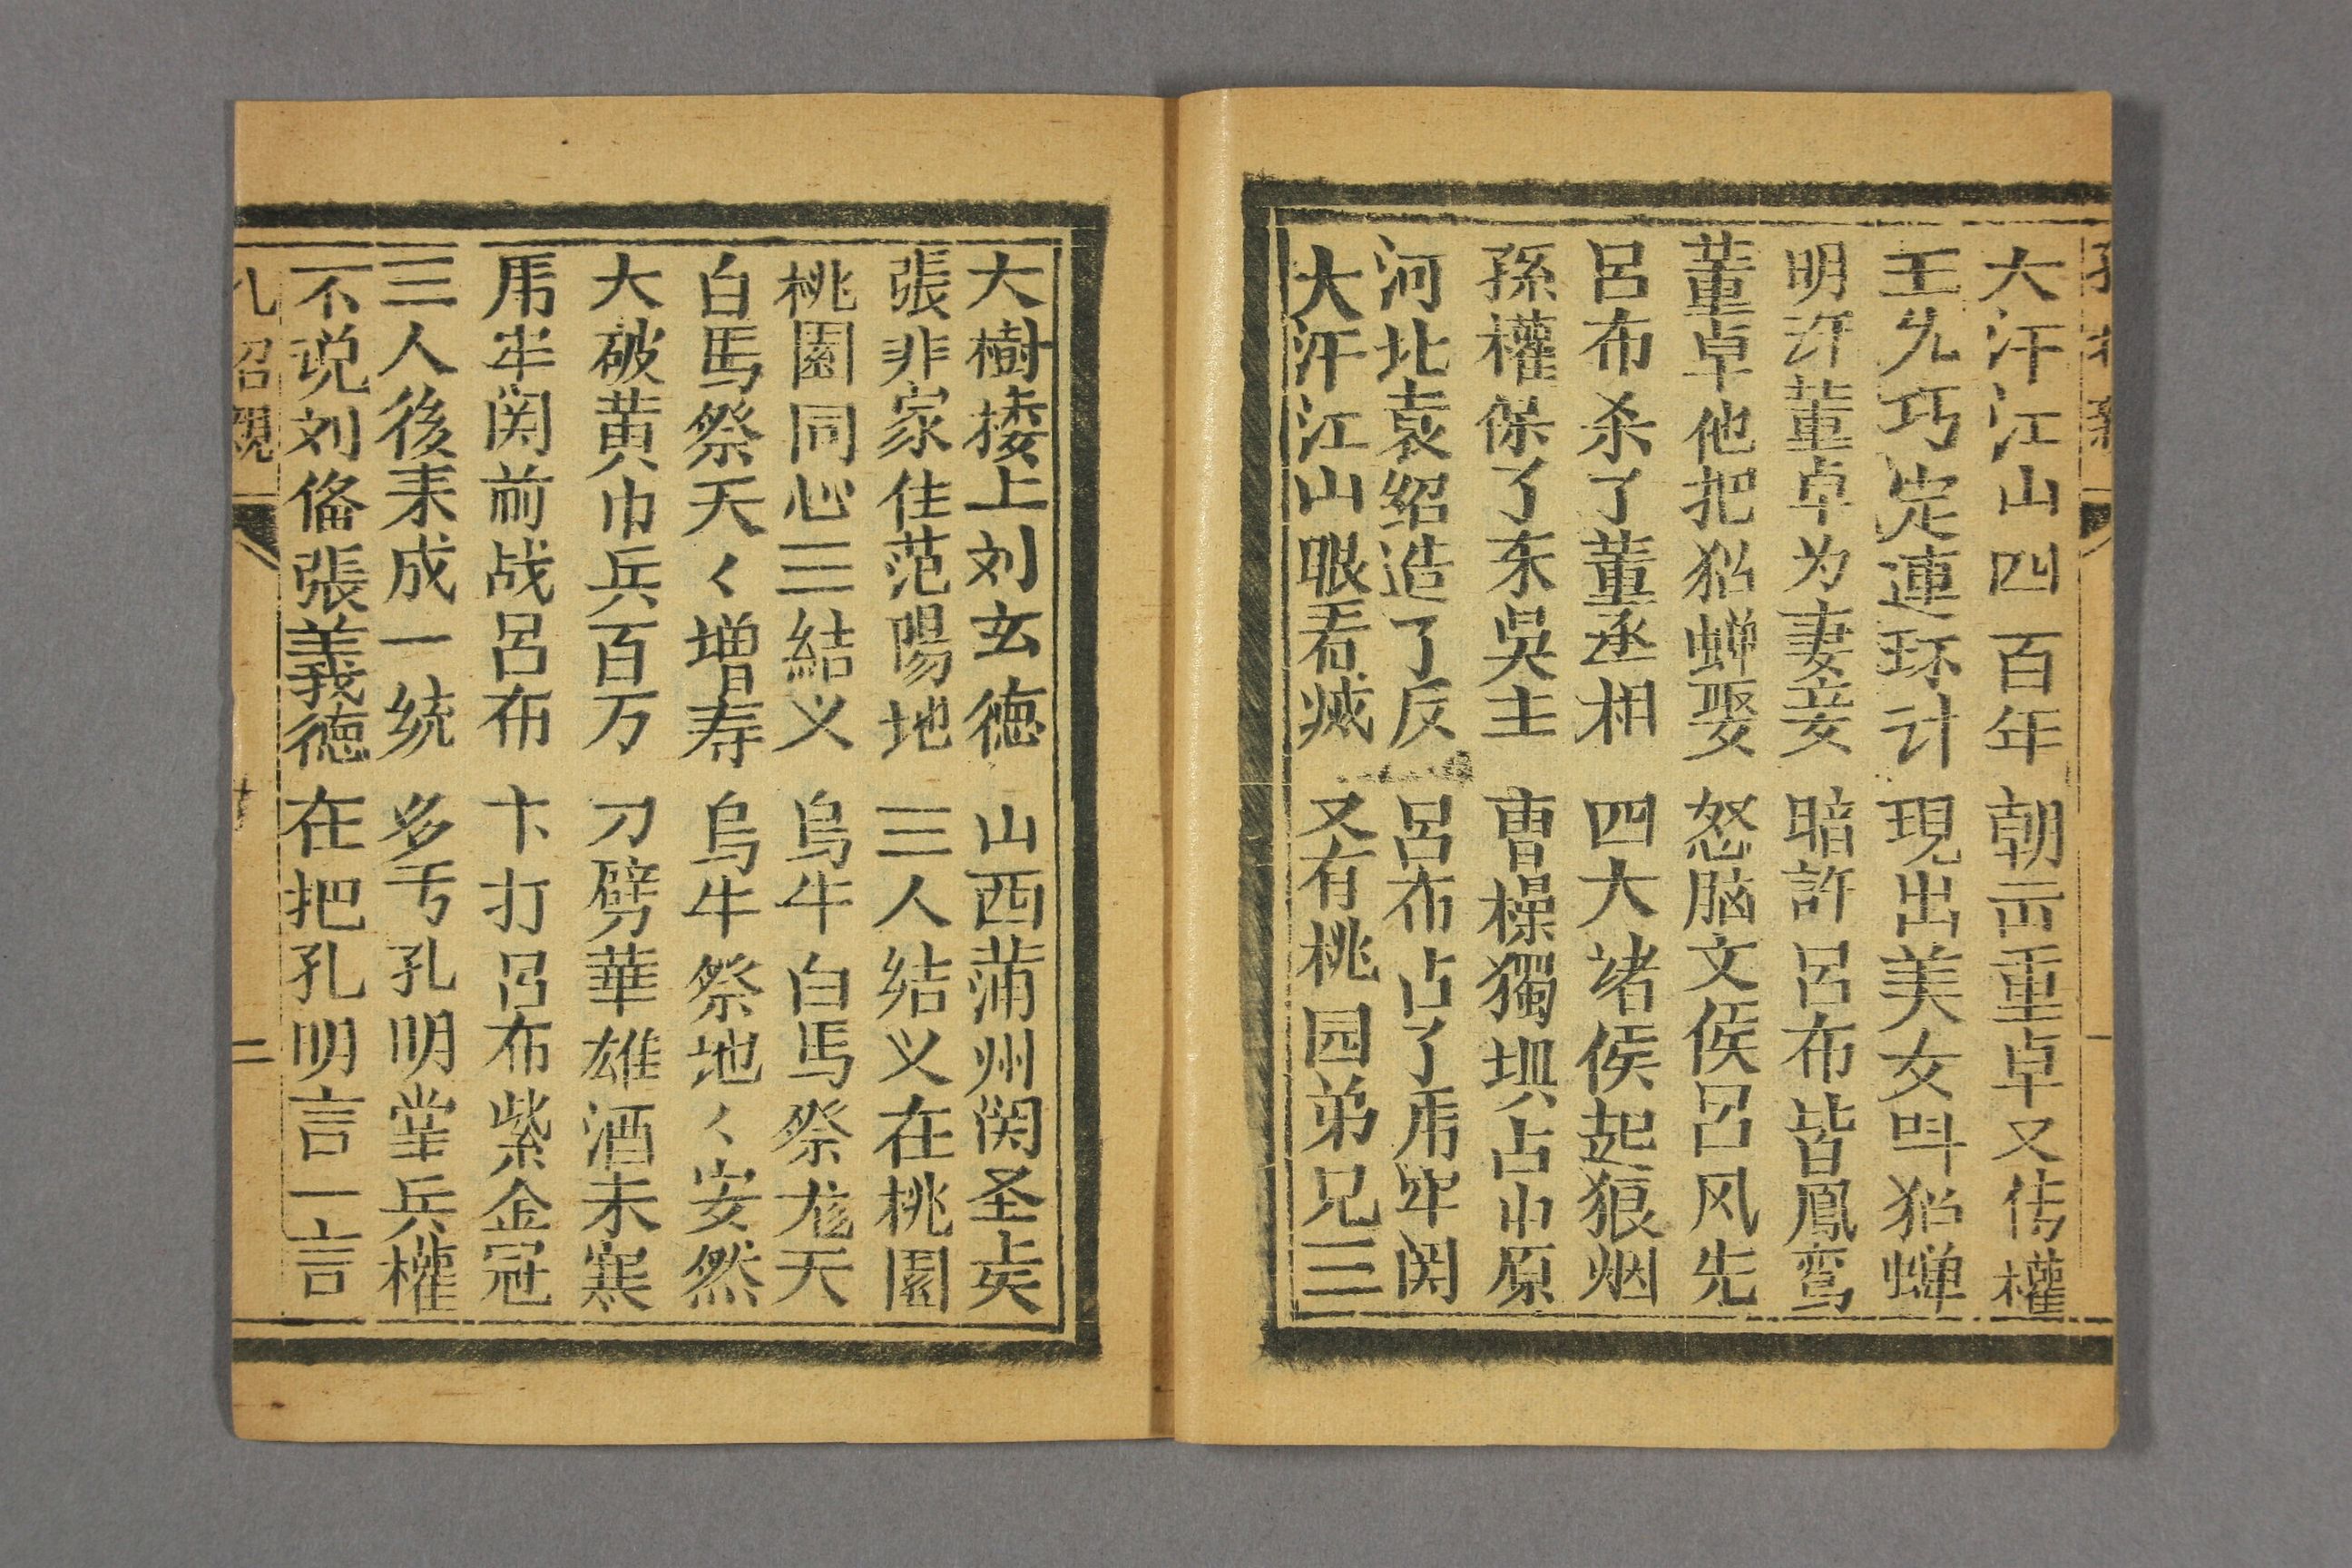 大汗江山四百年 朝出重卓又传權
王允巧定連环计 現出美女叫貂蝉
明许董卓为妻妾 暗許呂布皆鳳鸾
董卓他把貂蝉娶 怒脑文侯吕风先
呂布杀了董丞相 四大诸侯起狼烟
孫權保了东吳主 曹操獨垻占中原
河北袁绍造了反 呂布占了虎牢関
大汗江山眼看烕 又有桃园弟兄三
大樹搂上刘玄德 山西蒲州関圣贤
張非家住范陽地 三人结义在桃園
桃園同心三結义 烏牛白馬祭龙天
白馬祭天〱增寿 烏牛祭地〱安然
大破黄巾兵百万 刀劈華雄酒未寒
虎牢関前战呂布 卞打吕布紫金冠
三人後来成一统 多亏孔明掌兵權
不说刘俻張義德 在把孔明言一言
孔招親 二